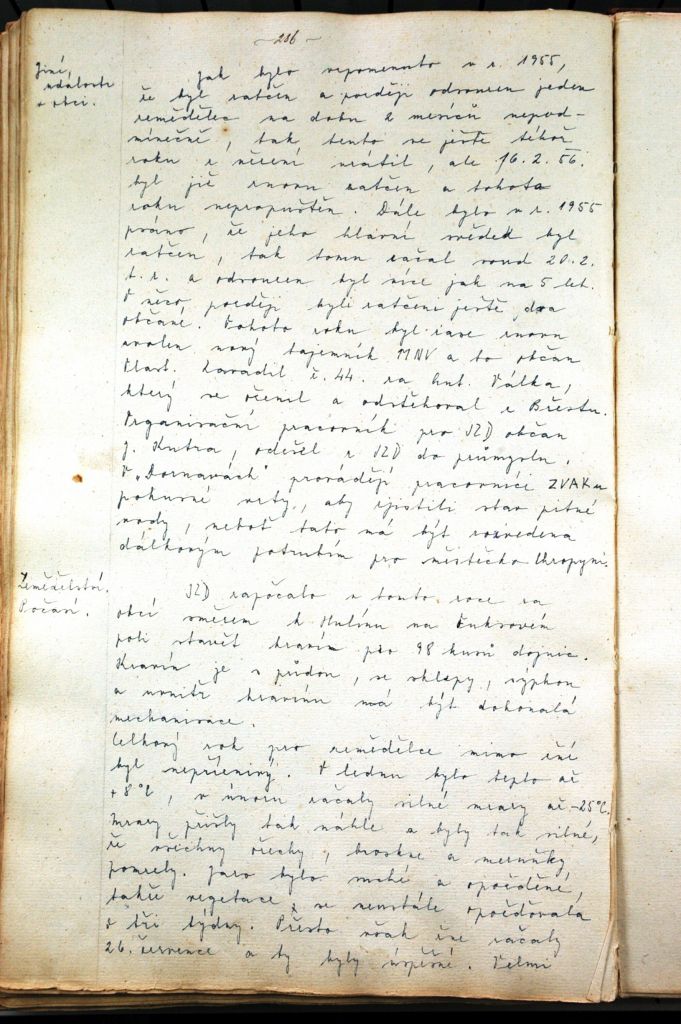 - 286 -
Jiné,
události
v obci.
Jak bylo vzpomenuto v r. 1955,
že byl zatčen a později odsouzen jeden
zemědělec na dobu 2 měsíců nepod-
míněně, tak tento se ještě téhož
roku z vězení vrátil, ale 16. 2. 56.
byl již znovu zatčen a tohoto
roku nepropuštěn. Dále bylo v r. 1955
psáno, že jeho hlavní svědek byl
zatčen, tak tomu začal soud 20. 2.
t. r. a odsouzen byl více jak na 5 let.
O něco později byli zatčeni ještě dva
občané. Tohoto roku byl zase znovu
zvolen nový tajemník MNV a to občan
Vlast. Zavadil č. 44. za Ant. Válka,
který se oženil a odstěhoval z Břestu.
Organisační pracovník pro JZD občan
J. Kutra, odešel z JZD do průmyslu.
V „Dornavách" provádějí pracovníci ZVAKu
pokusné vrty, aby zjistili stav pitné
vody, neboť tato má být rozvedena
dálkovým potrubím pro městečko Chropyni.
Zemědělství.
Počasí.
JZD započalo v tomto roce za
obcí směrem k Hulínu na Cukrovém
poli stavět kravín pro 98 kusů dojnic.
Kravín je s půdou, se sklepy, výškou
a uvnitř kravínu má být dokonalá
mechanisace.
Celkový rok pro zemědělce mimo žní
byl nepříznivý. V lednu bylo teplo až
+ 8°C, v únoru začaly silné mrazy až -25°C.
Mrazy přišly tak náhle a byly tak silné,
že všechny ořechy, broskve a meruňky
pomrzly. Jaro bylo suché a opožděné,
takže vegetace se neustále opožďovala
o tři týdny. Přesto však žně začaly
26. července a ty byly úspěšné. Velmi